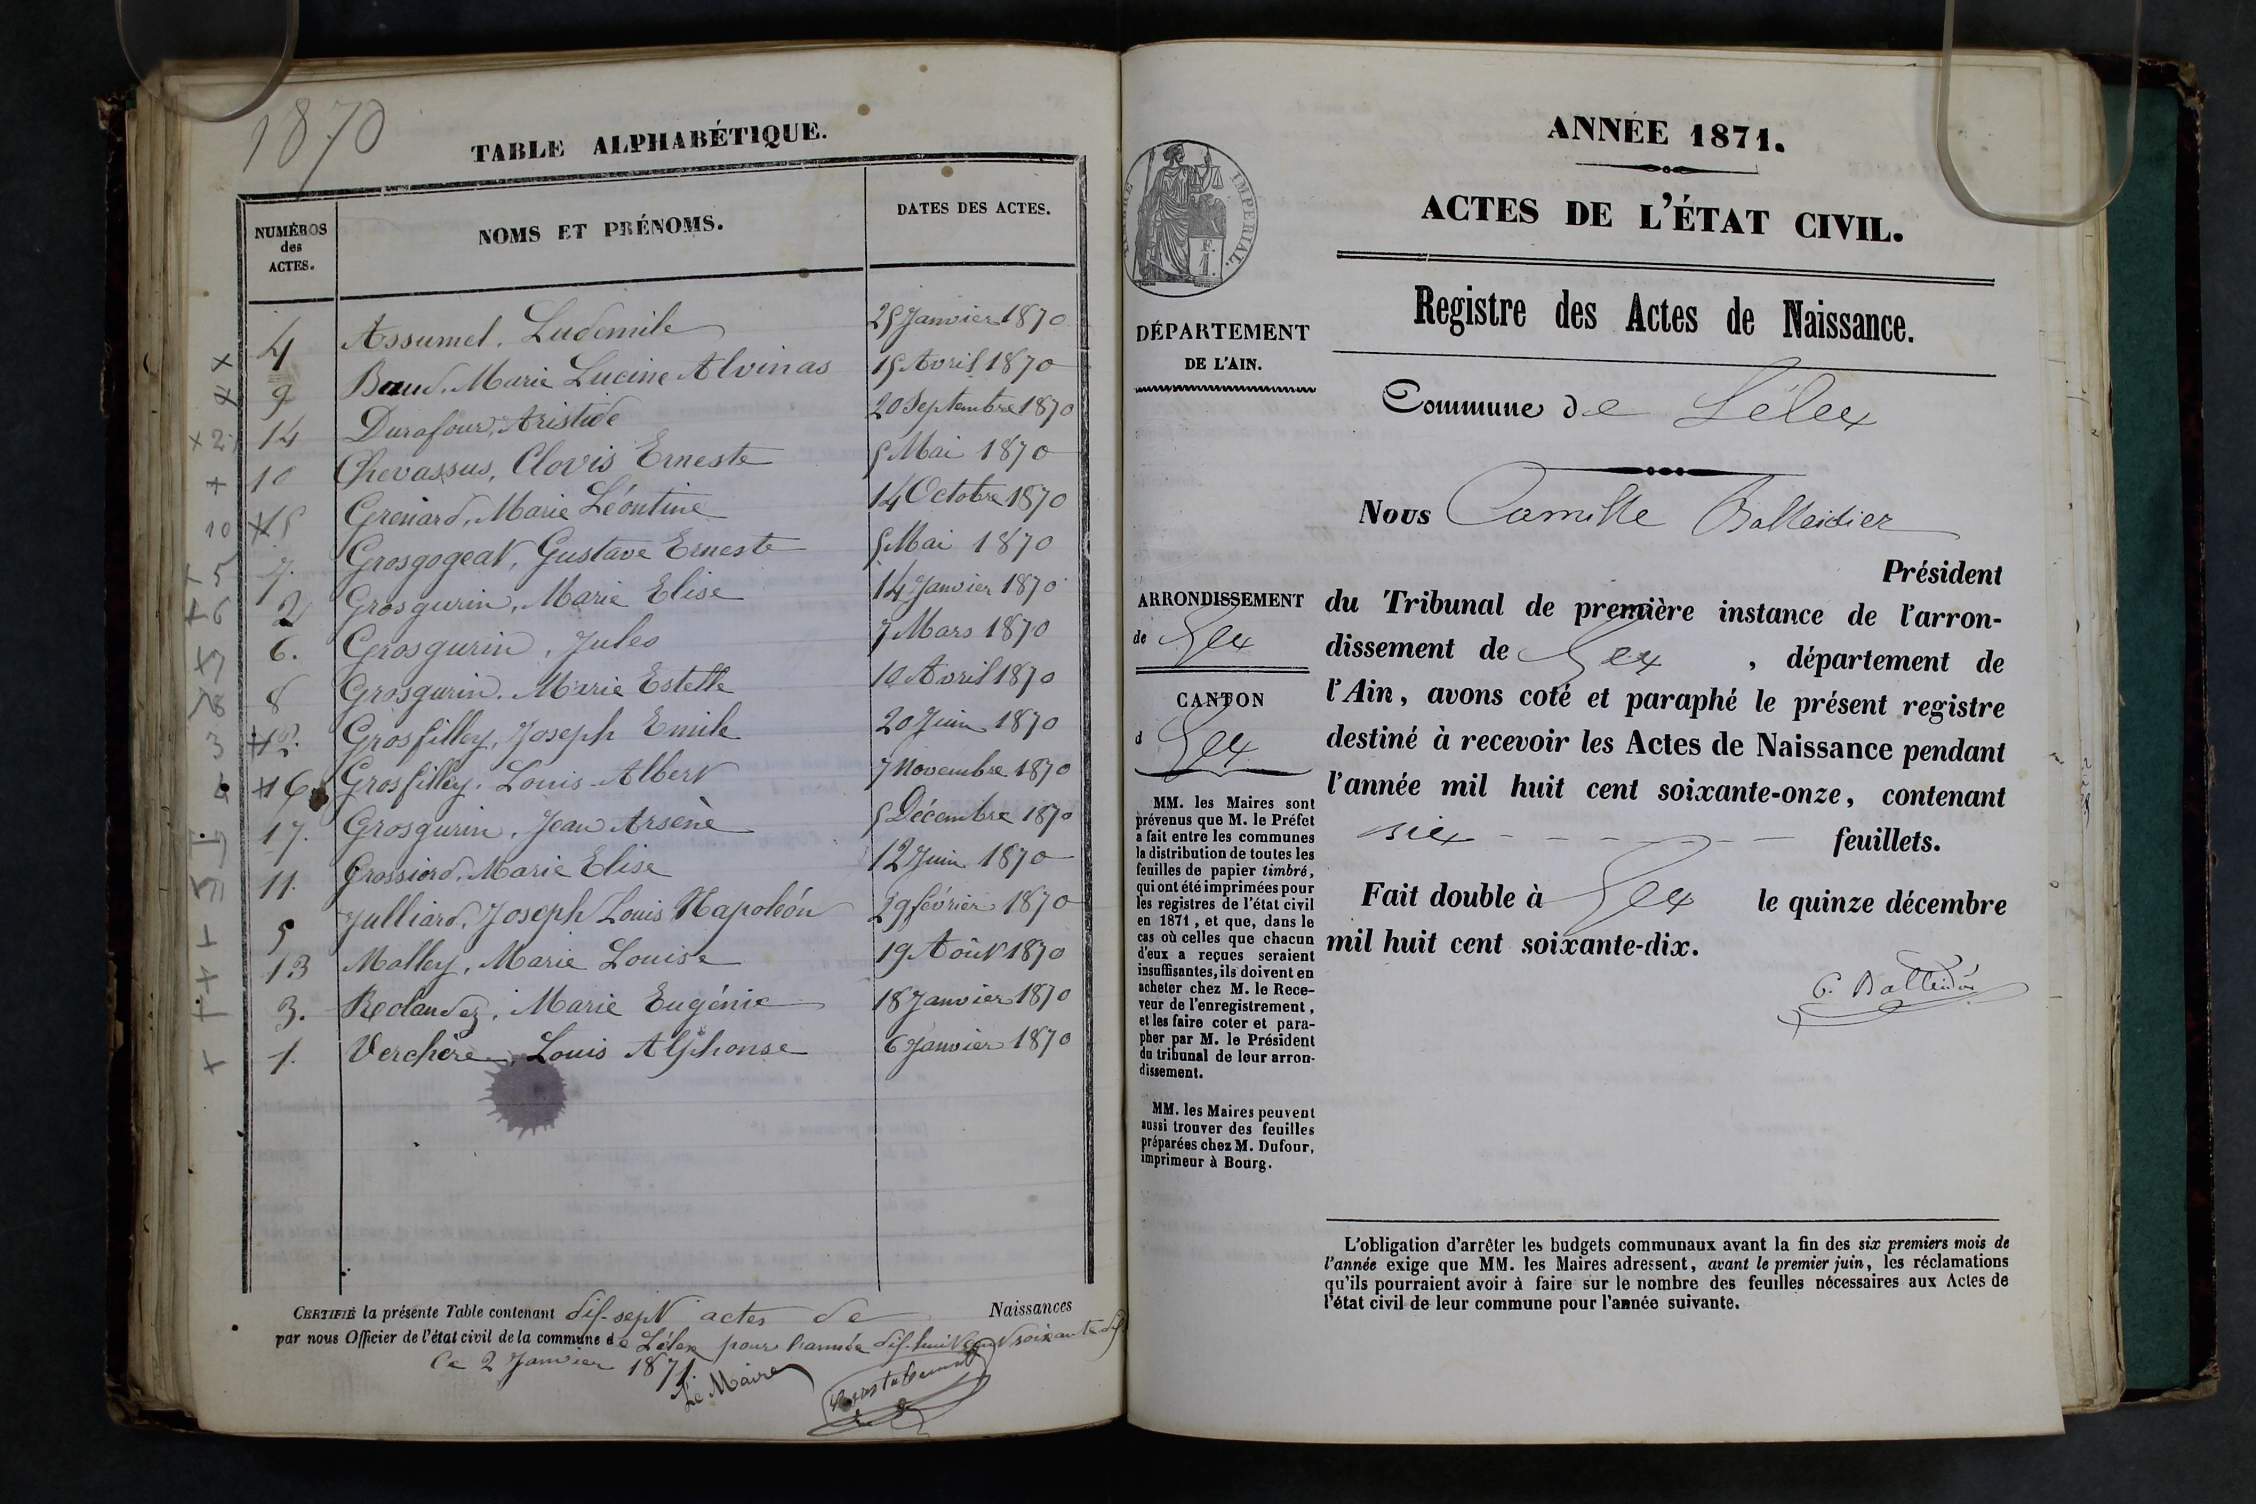 1870
TABLE ALPHABÉTIQUE.
NUMÉROS
des
ACTES.
NOMS ET PRÉNOMS.
DATES DES ACTES.
4 Assumel, Ludemile 25 Janvier 1870
9 Baud, Marie Lucine Alvinas 15 Avril 1870
14 Durafour, Aristide 20 Septembre 1870
10 Chevassus, Clovis Erneste 5 Mai 1870
15 Grenard, Marie Léontine 14 Octobre 1870
7. Grosgogeat, Gustave Erneste 5 Mai 1870
2 Grosgurin, Marie Elise 14 Janvier 1870
6. Grosgurin, Jules 7 Mars 1870
8 Grosgurin, Marie Estelle 10 Avril 1870
12. Grosfilley, Joseph Emile 20 Juin 1870
16. Grosfilley, Louis Albert 7 Novembre 1870
17. Grosgurin, Jean Arsène 5 Décembre 1870
11. Grossiord, Marie Elise 12 Juin 1870
5 Julliard, Joseph Louis Napoléon 29 février 1870
13 Malley, Marie Louise 19 Août 1870
3. Reolandez, Marie Eugénie 18 Janvier 1870
1. Verchère, Louis Alphonse 6 Janvier 1870
CERTIFIÉ la présente Table contenant dif-sept actes de Naissances
par nous Officier de l'état civil de la commune de Lélex pour l'année dif-huit cent soixante dif
Ce 2 Janvier 1871
Le Maire
ANNÉE 1871.
ACTES DE L'ÉTAT CIVIL.
TIMBRE IMPÉRIAL.
F.
1.
Registre des Actes de Naissance.
DÉPARTEMENT
DE L'AIN.
Commune de Lélex
Nous Camille Balleidier
Président
du Tribunal de première instance de l'arron-
dissement de Gex , département de
l'Ain, avons coté et paraphé le présent registre
destiné à recevoir les Actes de Naissance pendant
l'année mil huit cent soixante-onze, contenant
six feuillets.
Fait double à Gex le quinze décembre
mil huit cent soixante-dix.
C. Balleidier
ARRONDISSEMENT
de Gex
CANTON
d Gex
MM. les Maires sont
prévenus que M. le Préfet
a fait entre les communes
la distribution de toutes les
feuilles de papier timbré,
qui ont été imprimées pour
les registres de l'état civil
en 1871, et que, dans le
cas où celles que chacun
d'eux a reçues seraient
insuffisantes, ils doivent en
acheter chez M. le Rece-
veur de l'enregistrement,
et les faire coter et para-
pher par M. le Président
du tribunal de leur arron-
dissement.
MM. les Maires peuvent
aussi trouver des feuilles
préparées chez M. Dufour,
imprimeur à Bourg.
L'obligation d'arrêter les budgets communaux avant la fin des six premiers mois de
l'année exige que MM. les Maires adressent, avant le premier juin, les réclamations
qu'ils pourraient avoir à faire sur le nombre des feuilles nécessaires aux Actes de
l'état civil de leur commune pour l'année suivante.